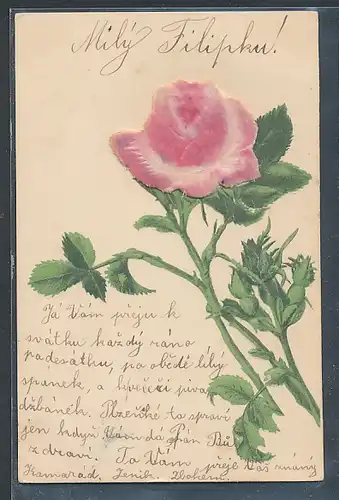 Milý Filipku!
Já Vám přeju k
svátku každý ráno
radesátku, po obědě lilý
spánek, a kvečeči piva
džbánek. Plzeňské to spraví
jen když Vám dá Pán Bůh
z draví. To Vám přeje Váš známý
Kamarád.